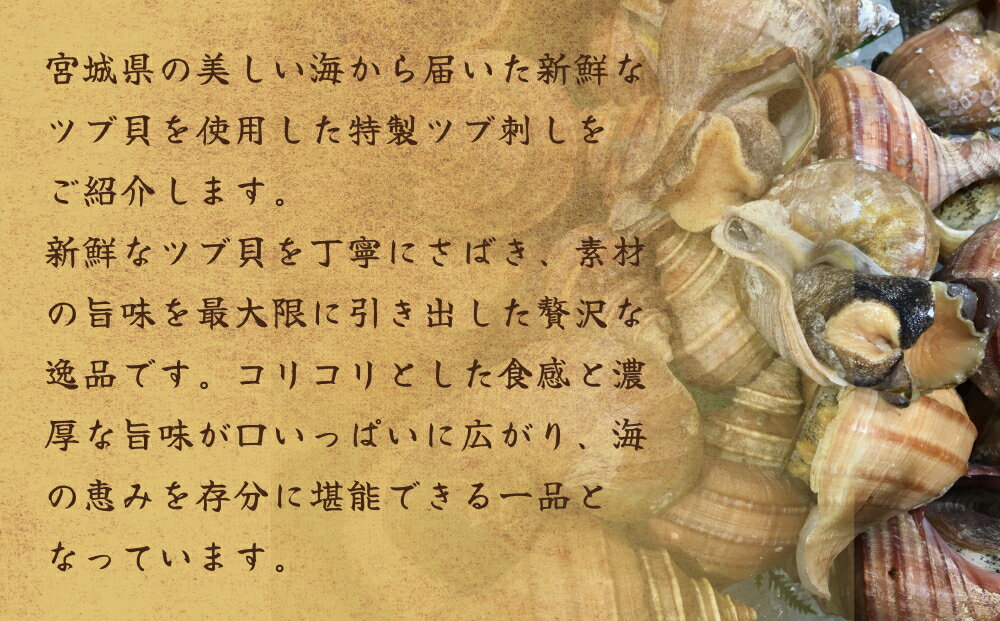 宮城県の美しい海から届いた新鮮な
ツブ貝を使用した特製ツブ刺しを
ご紹介します。
新鮮なツブ貝を丁寧にさばき、素材
の旨味を最大限に引き出した贅沢な
逸品です。コリコリとした食感と濃
厚な旨味が口いっぱいに広がり、海
の恵みを存分に堪能できる一品と
なっています。